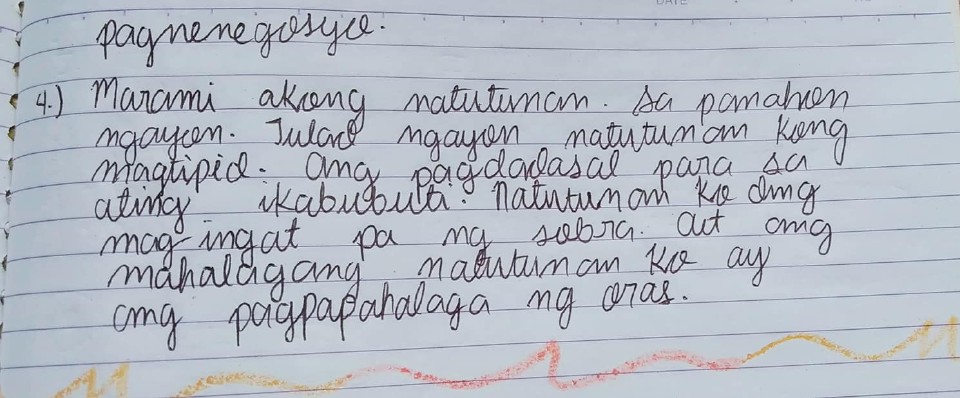 DATE
pagnenegosyo.
4.) Marami akong natutunan. Sa panahon
ngayon. Tulad ngayon natutunan kong
magtipid. Ang pagdadasal para sa
ating ikabubuti. Natutunan ko ang
mag-ingat pa ng sobra. At ang
mahalagang natutunan ko ay
ang pagpapahalaga ng oras.